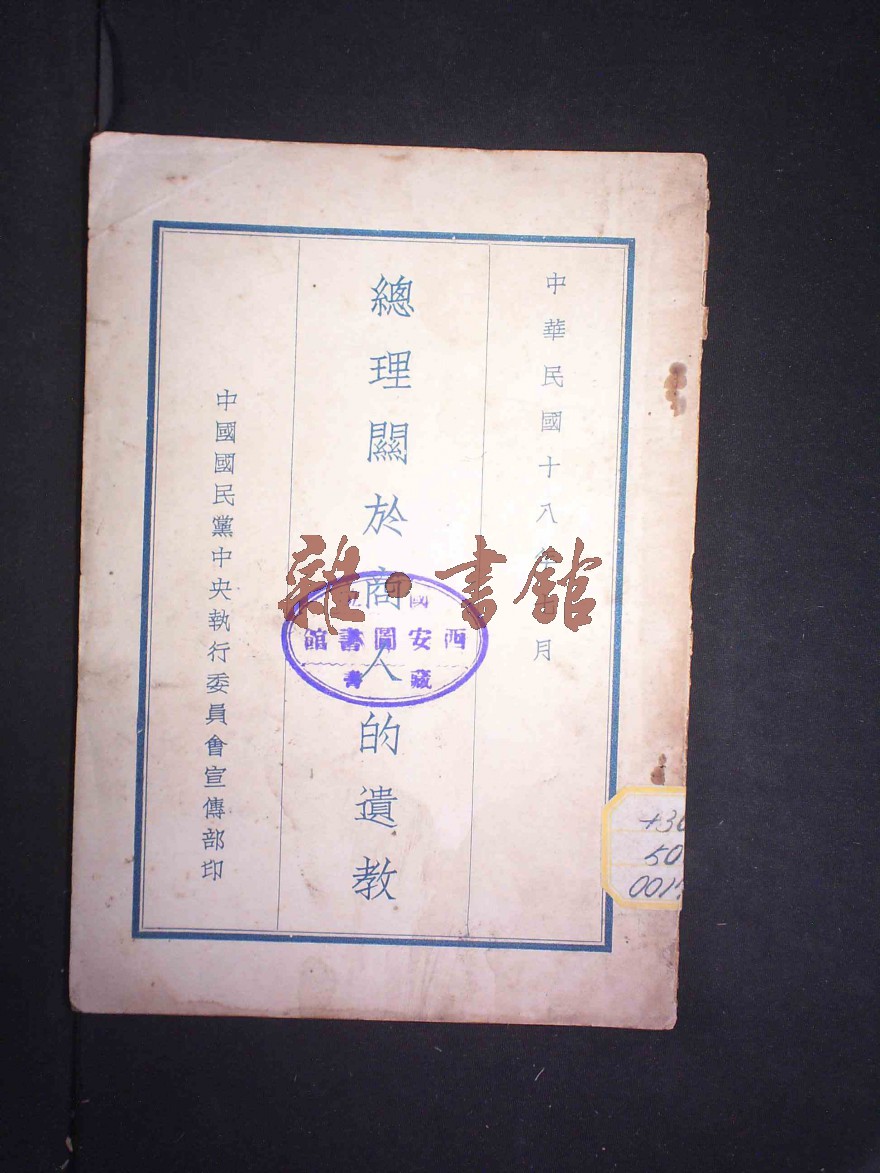 中華民國十八年 月
總理關於商人的遺教
中國國民黨中央執行委員會宣傳部印
雜·書館
國立
西安圖書館
藏書
+30
50
001